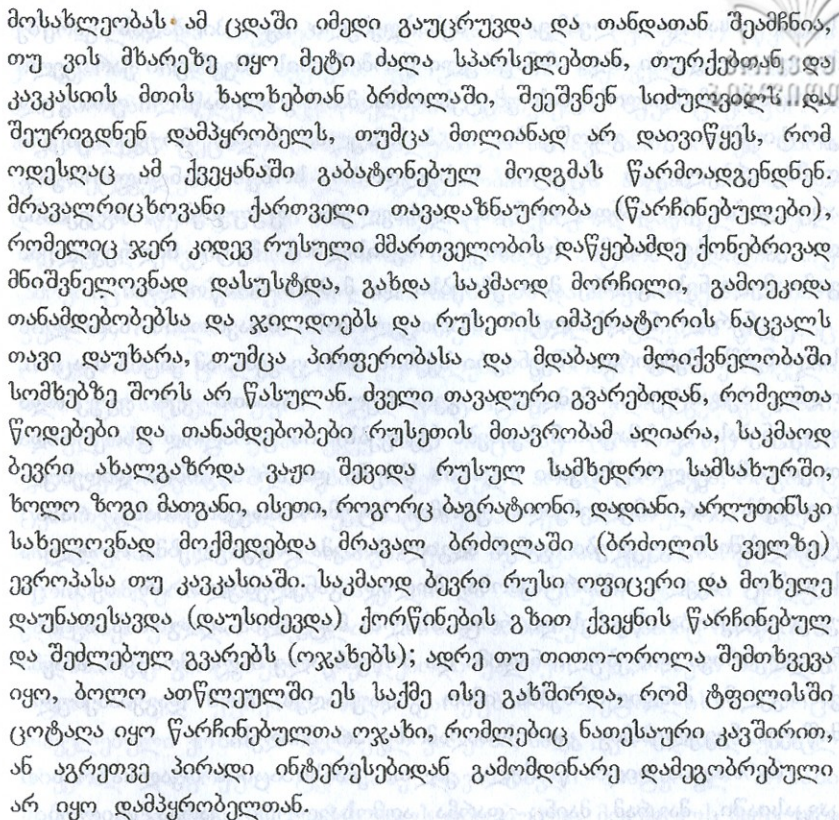 მოსახლეობას ამ ცდაში იმედი გაუცრუვდა და თანდათან შეამჩნია,
თუ ვის მხარეზე იყო მეტი ძალა სპარსელებთან, თურქებთან და
კავკასიის მთის ხალხებთან ბრძოლაში, შეეშვნენ სიძულვილს და
შეურიგდნენ დამპყრობელს, თუმცა მთლიანად არ დაივიწყეს, რომ
ოდესღაც ამ ქვეყანაში გაბატონებულ მოდგმას წარმოადგენდნენ.
მრავალრიცხოვანი ქართველი თავადაზნაურობა (წარჩინებულები),
რომელიც ჯერ კიდევ რუსული მმართველობის დაწყებამდე ქონებრივად
მნიშვნელოვნად დასუსტდა, გახდა საკმაოდ მორჩილი, გამოეკიდა
თანამდებობებსა და ჯილდოებს და რუსეთის იმპერატორის ნაცვალს
თავი დაუხარა, თუმცა პირფერობასა და მდაბალ მლიქვნელობაში
სომხებზე შორს არ წასულან. ძველი თავადური გვარებიდან, რომელთა
წოდებები და თანამდებობები რუსეთის მთავრობამ აღიარა, საკმაოდ
ბევრი ახალგაზრდა ვაჟი შევიდა რუსულ სამხედრო სამსახურში,
ხოლო ზოგი მათგანი, ისეთი, როგორც ბაგრატიონი, დადიანი, არღუთინსკი
სახელოვნად მოქმედებდა მრავალ ბრძოლაში (ბრძოლის ველზე)
ევროპასა თუ კავკასიაში. საკმაოდ ბევრი რუსი ოფიცერი და მოხელე
დაუნათესავდა (დაუსიძევდა) ქორწინების გზით ქვეყნის წარჩინებულ
და შეძლებულ გვარებს (ოჯახებს); ადრე თუ თითო-ოროლა შემთხვევა
იყო, ბოლო ათწლეულში ეს საქმე ისე გახშირდა, რომ ტფილისში
ცოტაღა იყო წარჩინებულთა ოჯახი, რომლებიც ნათესაური კავშირით,
ან აგრეთვე პირადი ინტერესებიდან გამომდინარე დამეგობრებული
არ იყო დამპყრობელთან.